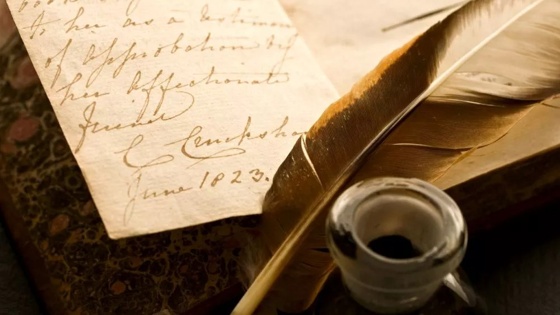 to her as a testimony
of approbation by
her affectionate
friend
C Cruicksha
June 1823.